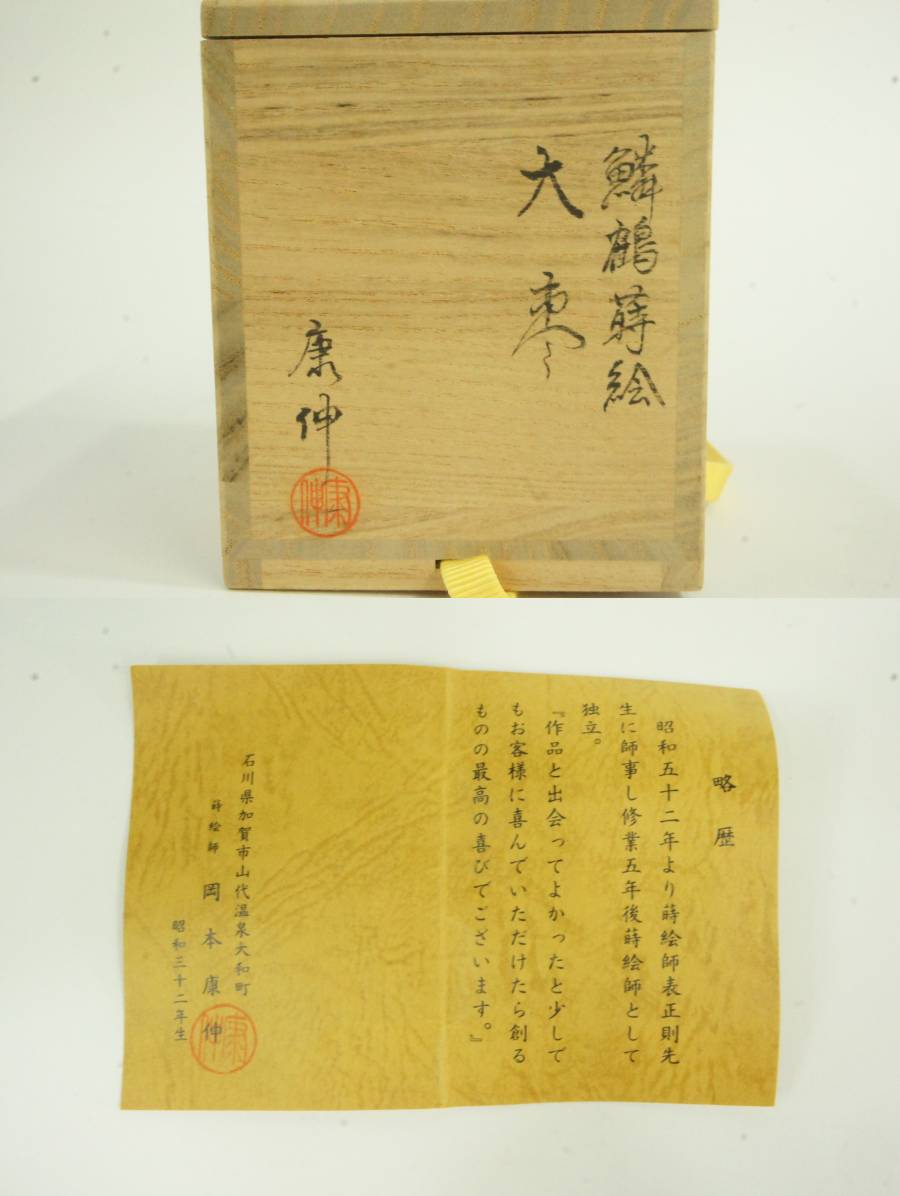 鱗鶴蒔絵
大棗
康伸
康伸
略歴
昭和五十二年より蒔絵師表正則先
生に師事し修業五年後蒔絵師として
独立。
『作品と出会ってよかったと少しで
もお客様に喜んでいただけたら創る
ものの最高の喜びでございます。』
石川県加賀市山代温泉大和町
蒔絵師 岡本康伸
康伸
昭和三十二年生